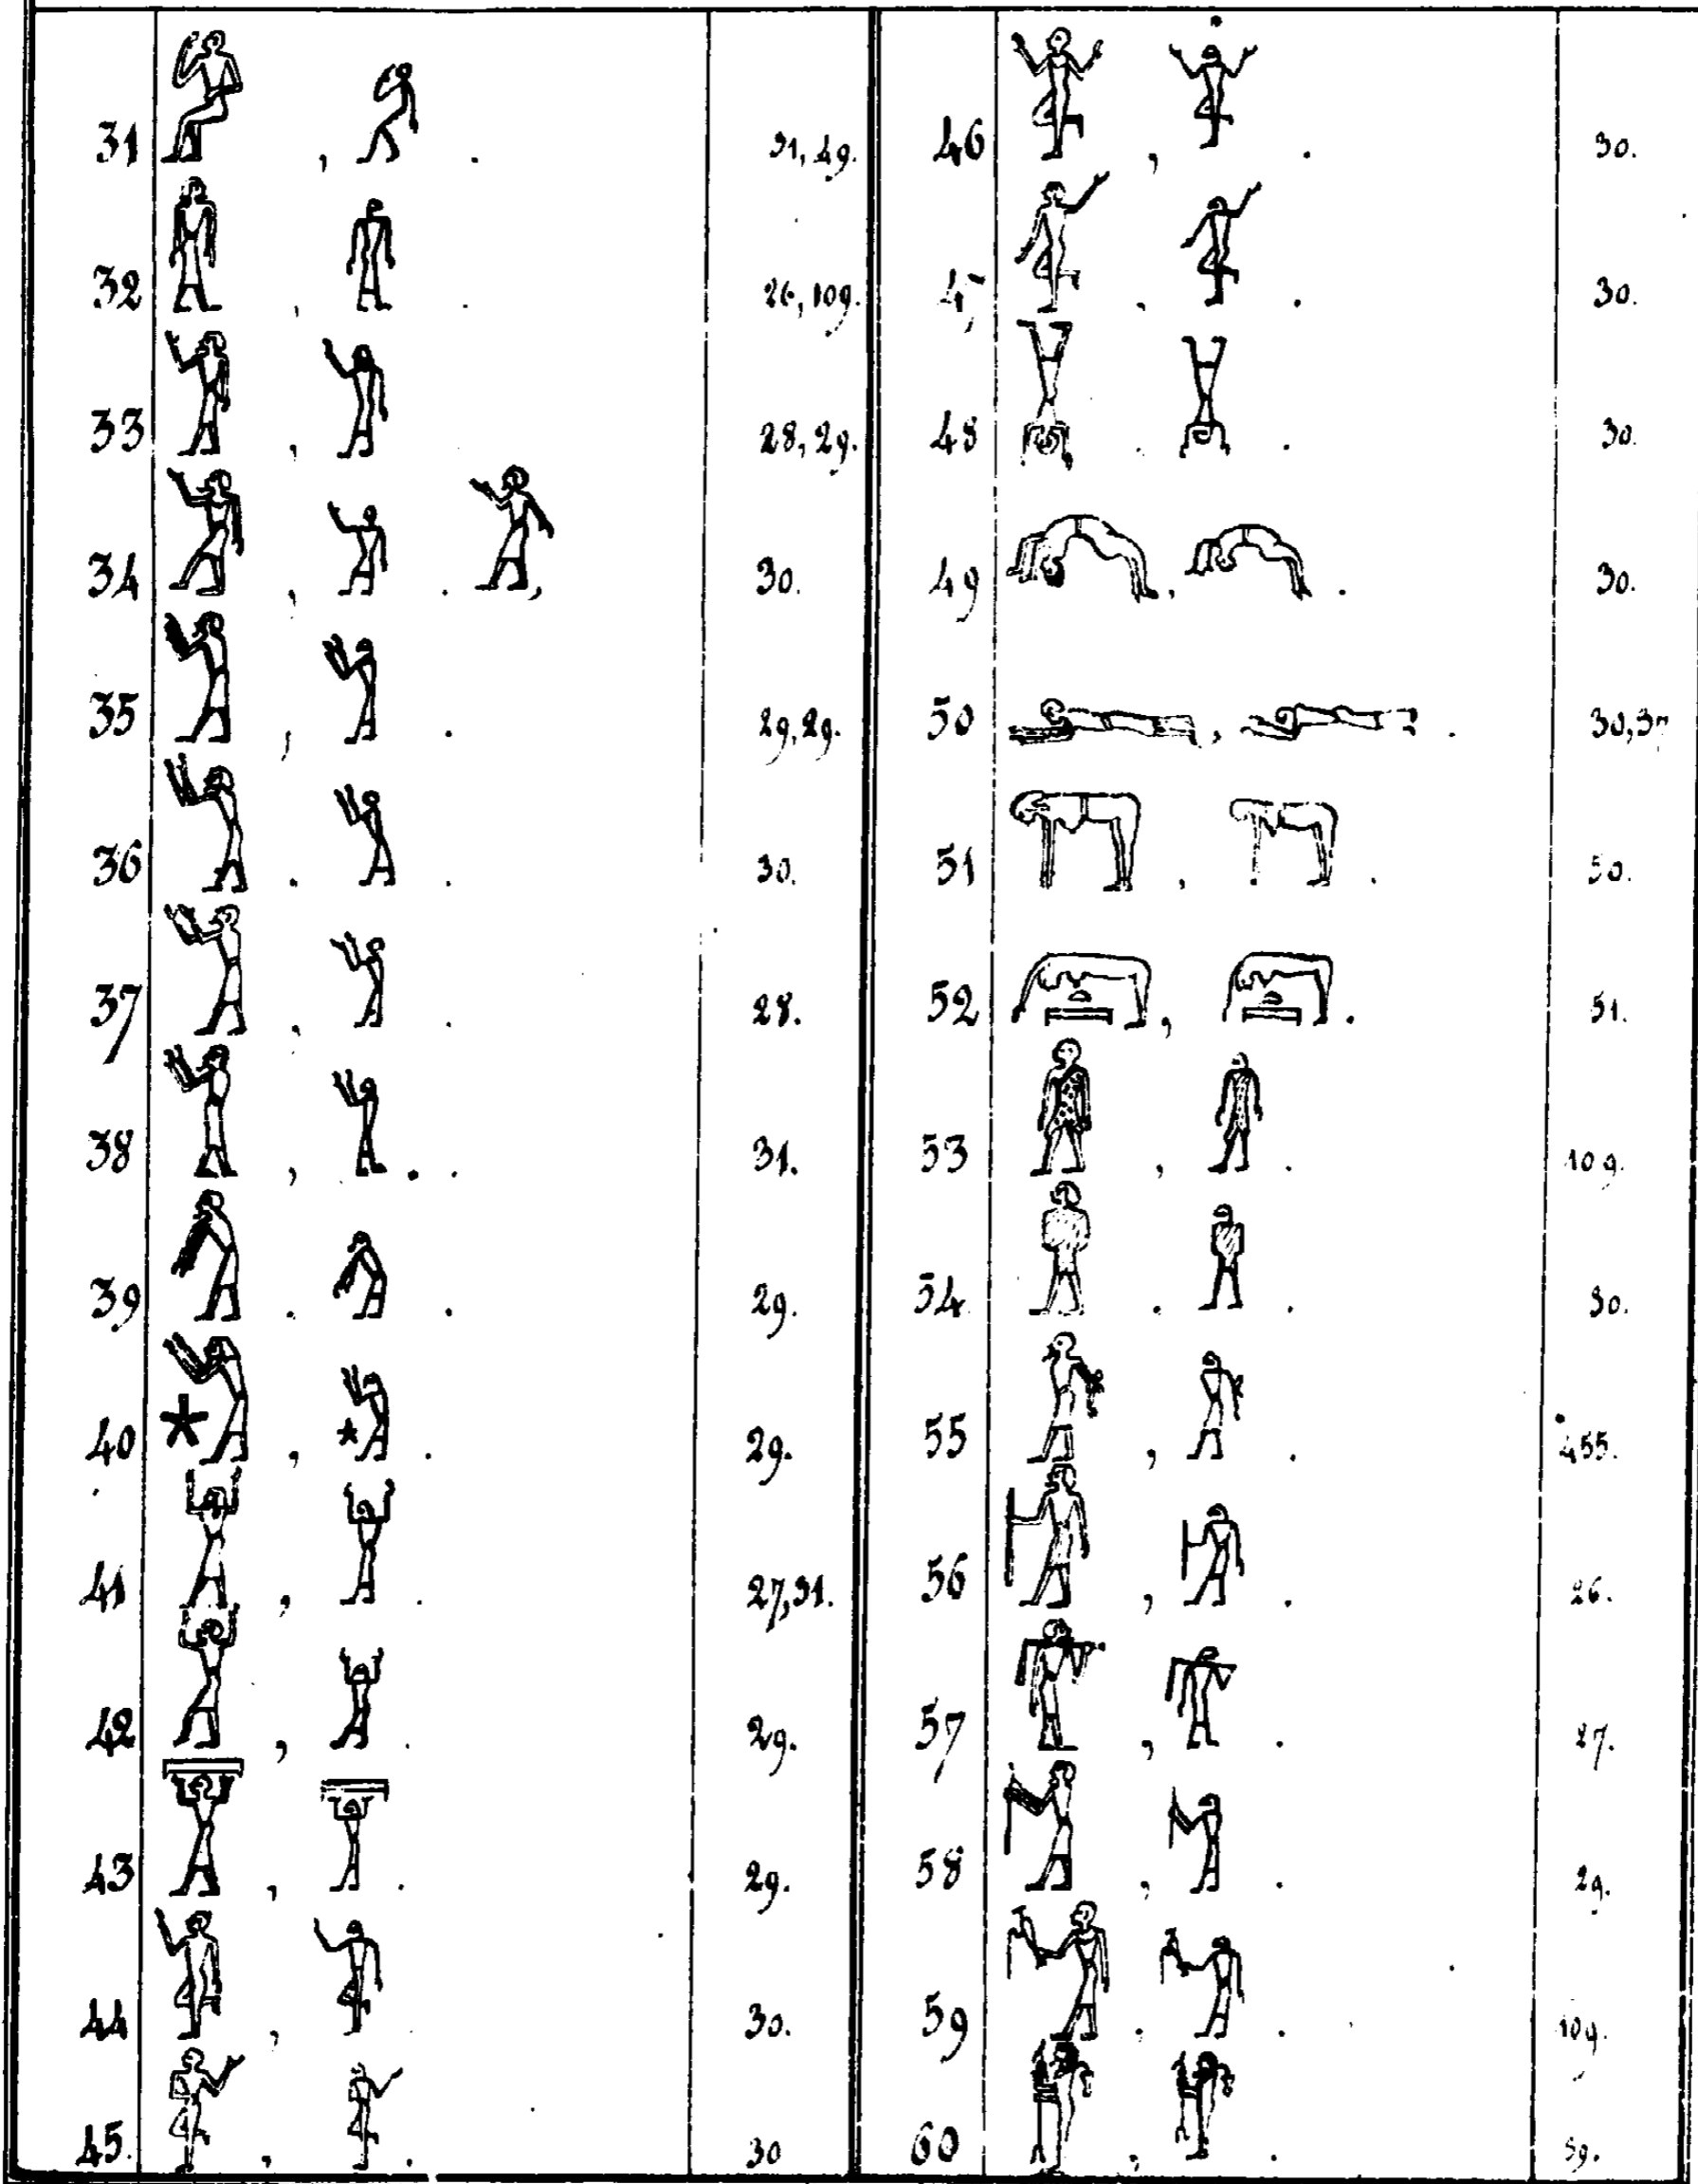 31 , . 31, 49.
32 , . 26, 109.
33 , 28, 29.
34 , . , 30.
35 , . 29, 29.
36 . . 30.
37 , . 28.
38 , . . 31.
39 . . 29.
40 , . 29.
41 , . 27, 31.
42 , . 29.
43 , . 29.
44 , 30.
45. , . 30
46 , . 30.
47 , . 30.
48 . . 30.
49 , . 30.
50 , . 30,
51 , .
52 , . 51.
53 , . 109.
54. . . 30.
55 , . 455.
56 , . 26.
57 , . 27.
58 , . 29.
59 . . 109.
60 , .